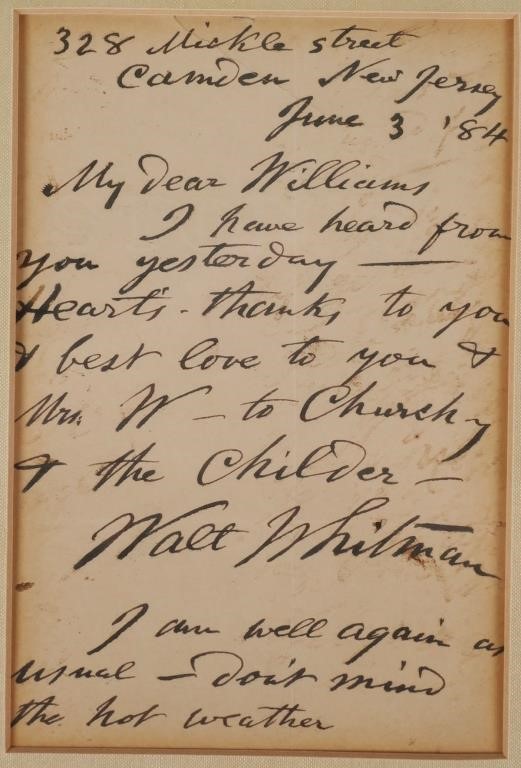 328 Mickle street
Camden New Jersey
June 3 '84
My dear Williams
I have heard from
you yesterday —
Heart's - thanks to you
& best love to you &
Mrs. W — to Churchy
& the Childer —
Walt Whitman
I am well again as
usual — don't mind
the hot weather